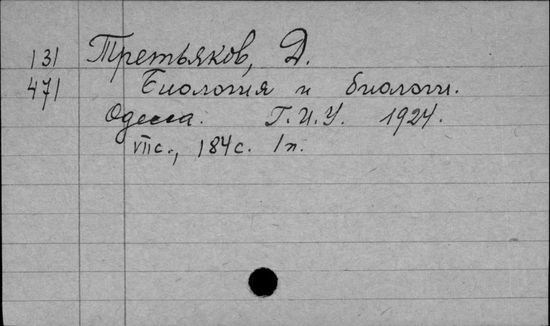 131 Третьяков, Д.
471 Биология и биологи.
Одесса. Г.И.У. 1924.
VII с., 184 с. 1 л.